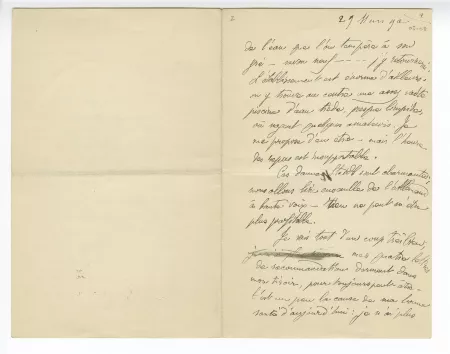 2
29 Mars 92
de l'eau que l'on tempère à son
gré — mon neuf — j'y retournerai
L'établissement est énorme d'ailleurs :
on y trouve au contre une assez vaste
piscine d'eau tiède, presque limpide,
où nagent quelques amateurs. Je
me propose d'en être — mais l'heure
du repas est insupportable.
Ces dames sont charmantes,
nous allons lire ensemble de l'allemand
à haute voix — rien ne peut m'être
plus profitable.
Je suis tout d'un coup très
mes quatre lettres
de recommandation dorment dans
mon tiroir, pour toujours peut-être.
C'est un peu la cause de ma bonne
santé d'aujourd'hui : je n'ai plus